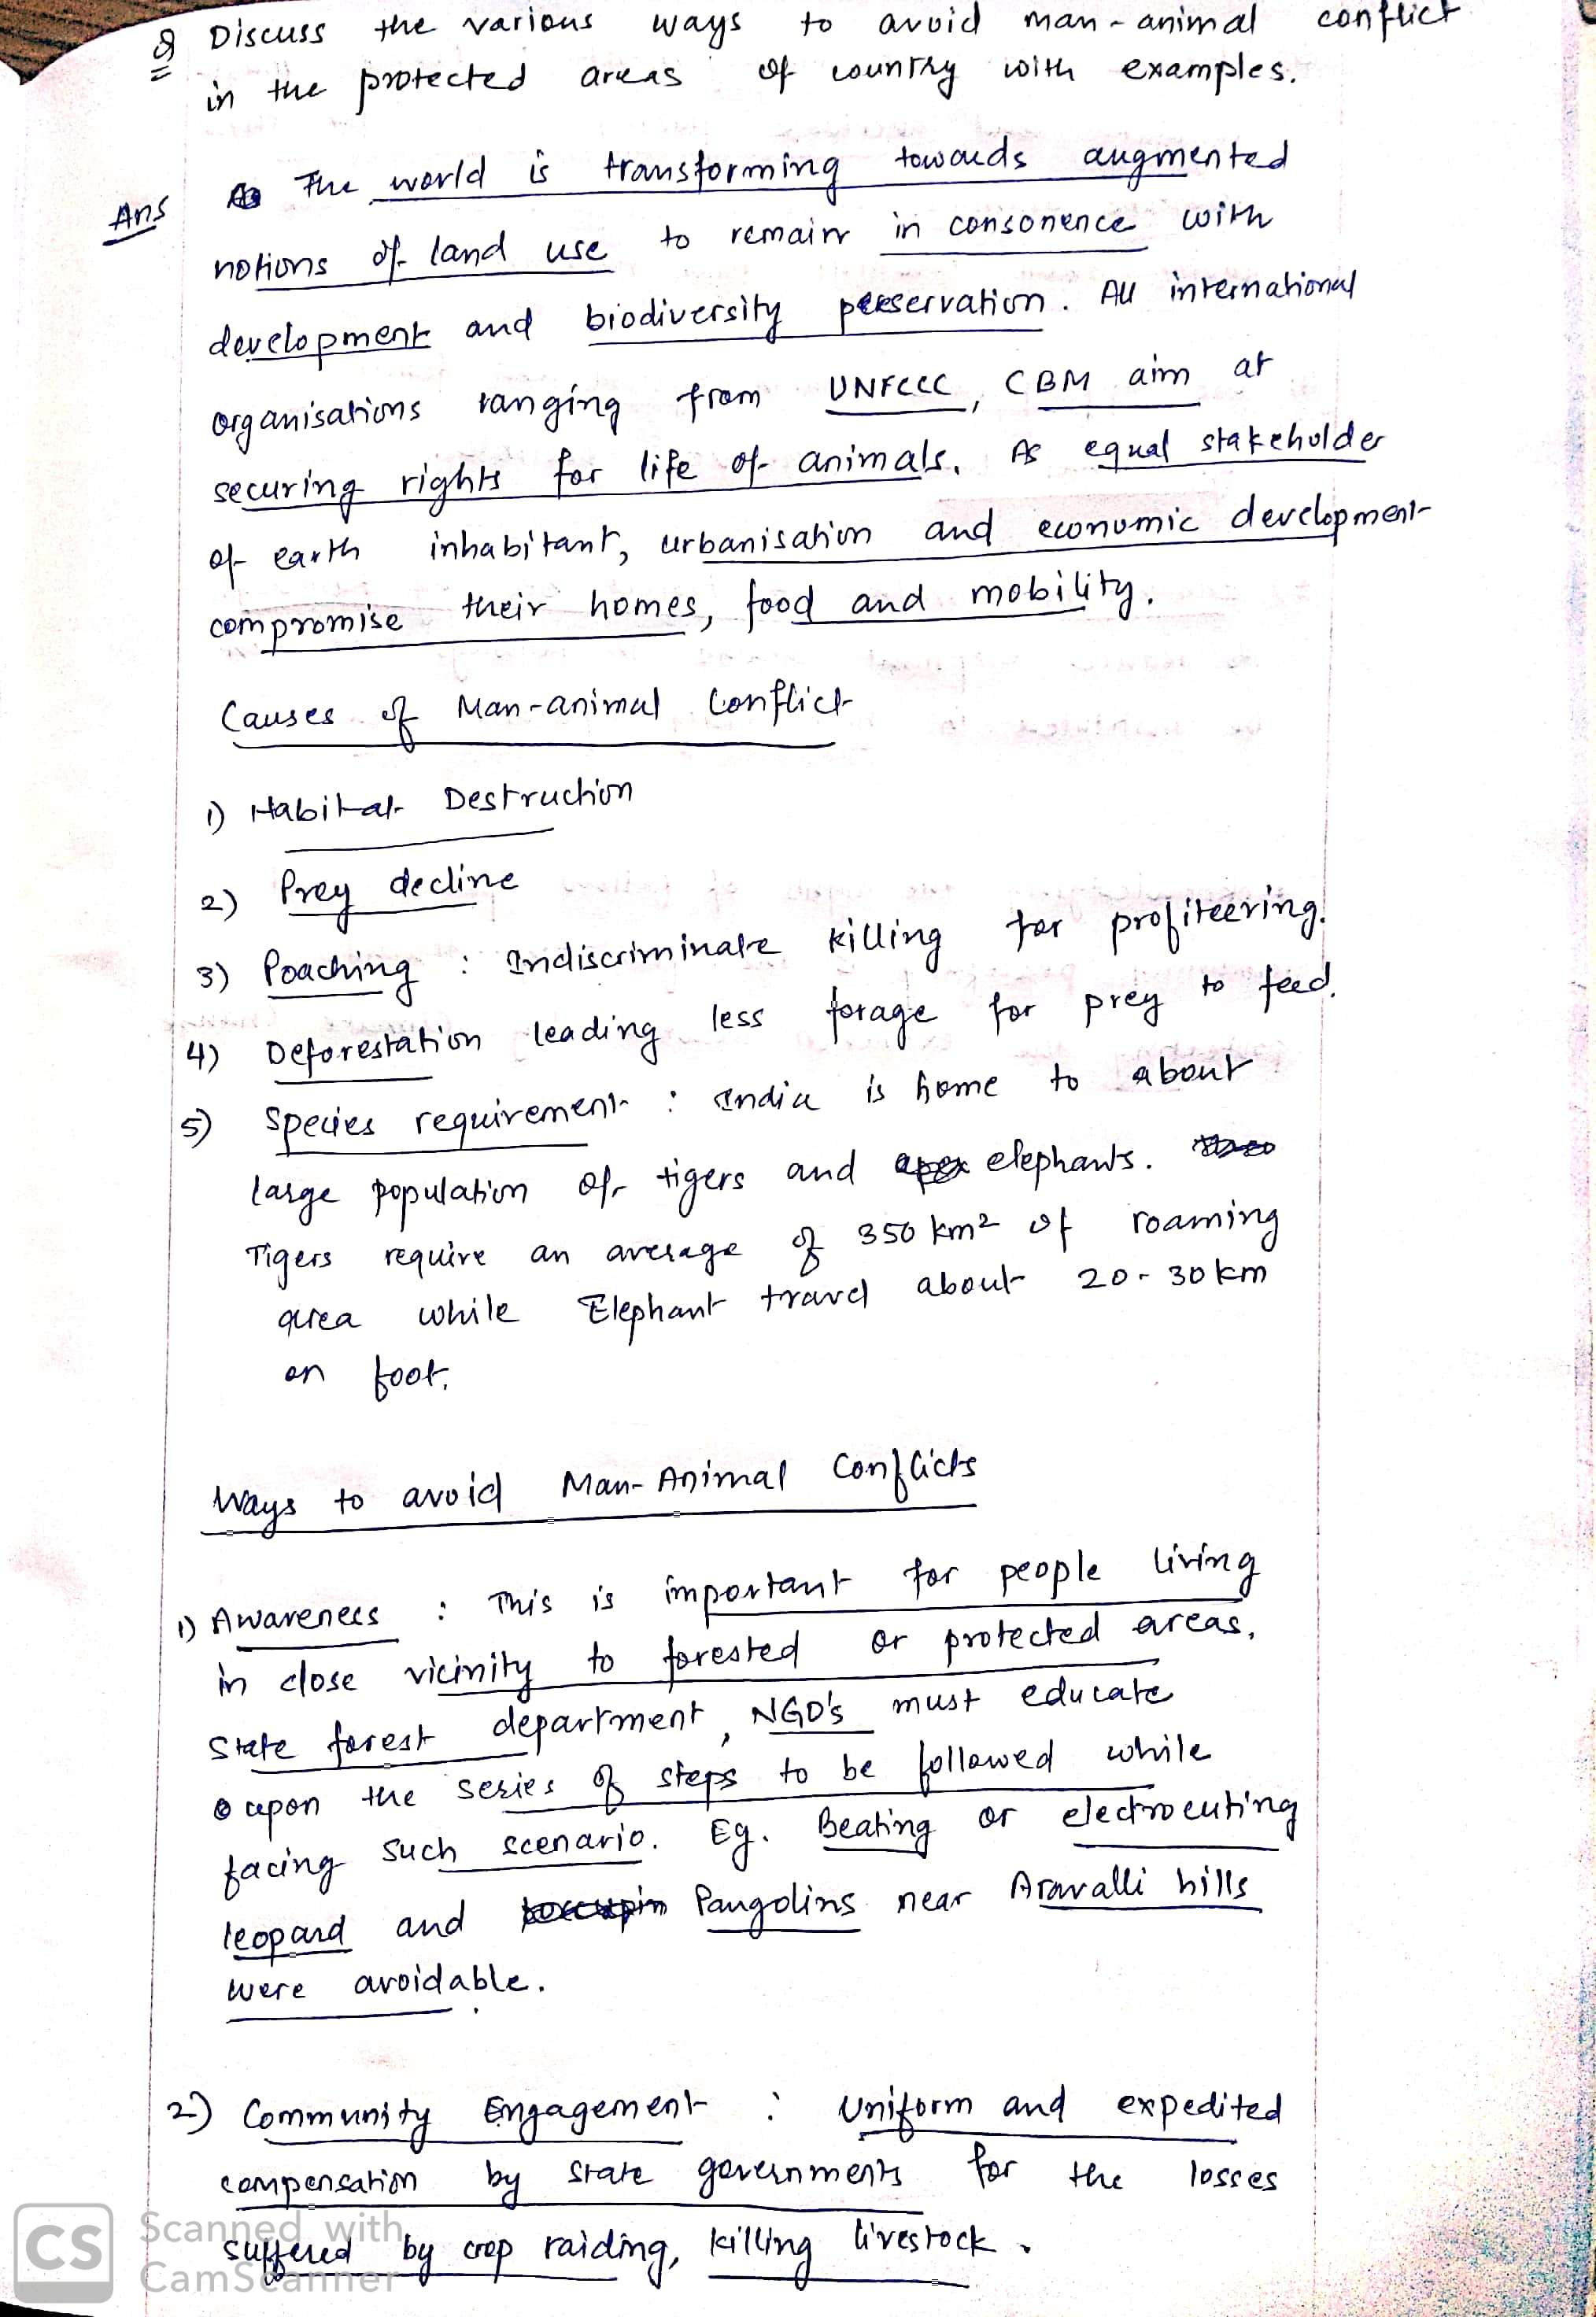 Q Discuss the various ways to avoid man-animal conflict
in the protected areas of country with examples.
Ans The world is transforming towards augmented
notions of land use to remain in consonence with
development and biodiversity preservation. All international
organisations ranging from UNFCCC, CBM aim at
securing rights for life of animals. As equal stakeholder
of earth inhabitant, urbanisation and economic development
compromise their homes, food and mobility.
Causes of Man-animal Conflict
1) Habitat Destruction
2) Prey decline
3) Poaching : Indiscriminate killing for profiteering.
4) Deforestation leading less forage for prey to feed.
5) Species requirement : India is home to about
large population of tigers and elephants.
Tigers require an average of 350 km2 of roaming
area while Elephant travel about 20-30 km
on foot.
Ways to avoid Man-Animal Conflicts
1) Awareness : This is important for people living
in close vicinity to forested or protected areas.
State forest department, NGO's must educate
upon the series of steps to be followed while
facing such scenario. Eg. Beating or electrocuting
leopard and Pangolins near Aravalli hills
were avoidable.
2) Community Engagement : Uniform and expedited
compensation by state governments for the losses
suffered by crop raiding, killing livestock.
CS Scanned with
CamScanner